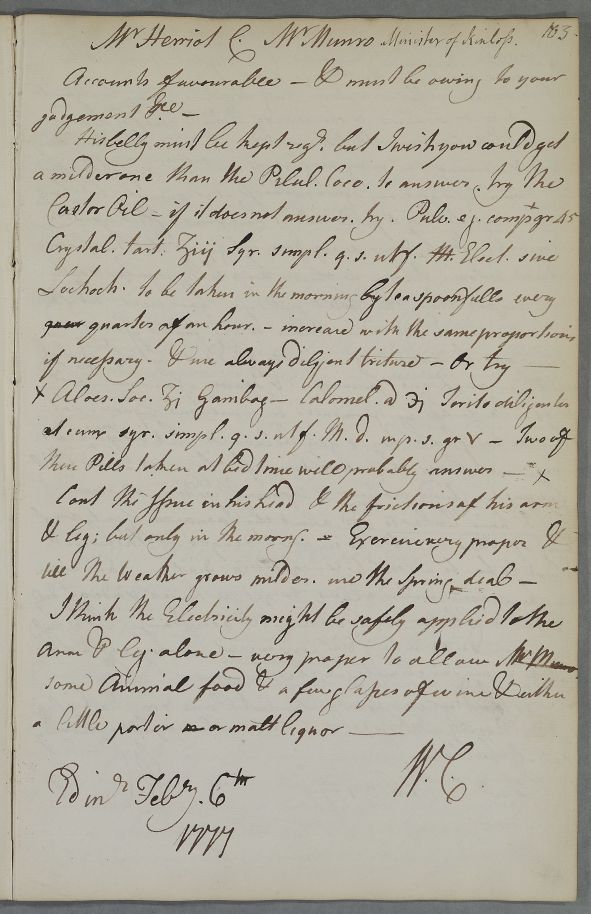 Mr Herriot C. Mr Munro Minister of Kinloss. 103.
Accounts favourable – & must be owing to your
judgement &ce –
His belly must be kept regr. but I wish you could get
a milder one than the Pilul. Coco. to answer, try the
Castor Oil – if it does not answer. try. Pulv. ej. comps gr 45
Crystal. tart. ʒiij Syr. simpl. q. s. ut f. Elect. sive
Lochoch. to be taken in the morning by teaspoonfulls every
quarter of an hour. – increase with the same proportions
if necessary – & use always diligent triture – Or try —
x Aloes. Soc. ʒj Gambog – Calomel. a ʒj Terito diligenter
et cum syr. simpl. q. s. ut f. M. d. in p. s. gr V – Two of
these Pills taken at bed time will probably answer — x
Cont the Issue in his head & the frictions of his arm
& leg; but only in the morng. – Exercise very proper &
till the Weather grows milder. use the Spring deal –
I think the Electricity might be safely applied to the
arm & leg. alone – very proper to allow Mr Munro
some Animal food & a few glasses of wine & either
a little porter or malt liquor —
W. C.
Edinr Feby. 6th
1777